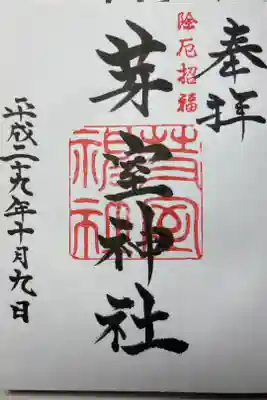 奉拝
除厄招福
芽室神社
芽室神社
平成二十九年十月九日